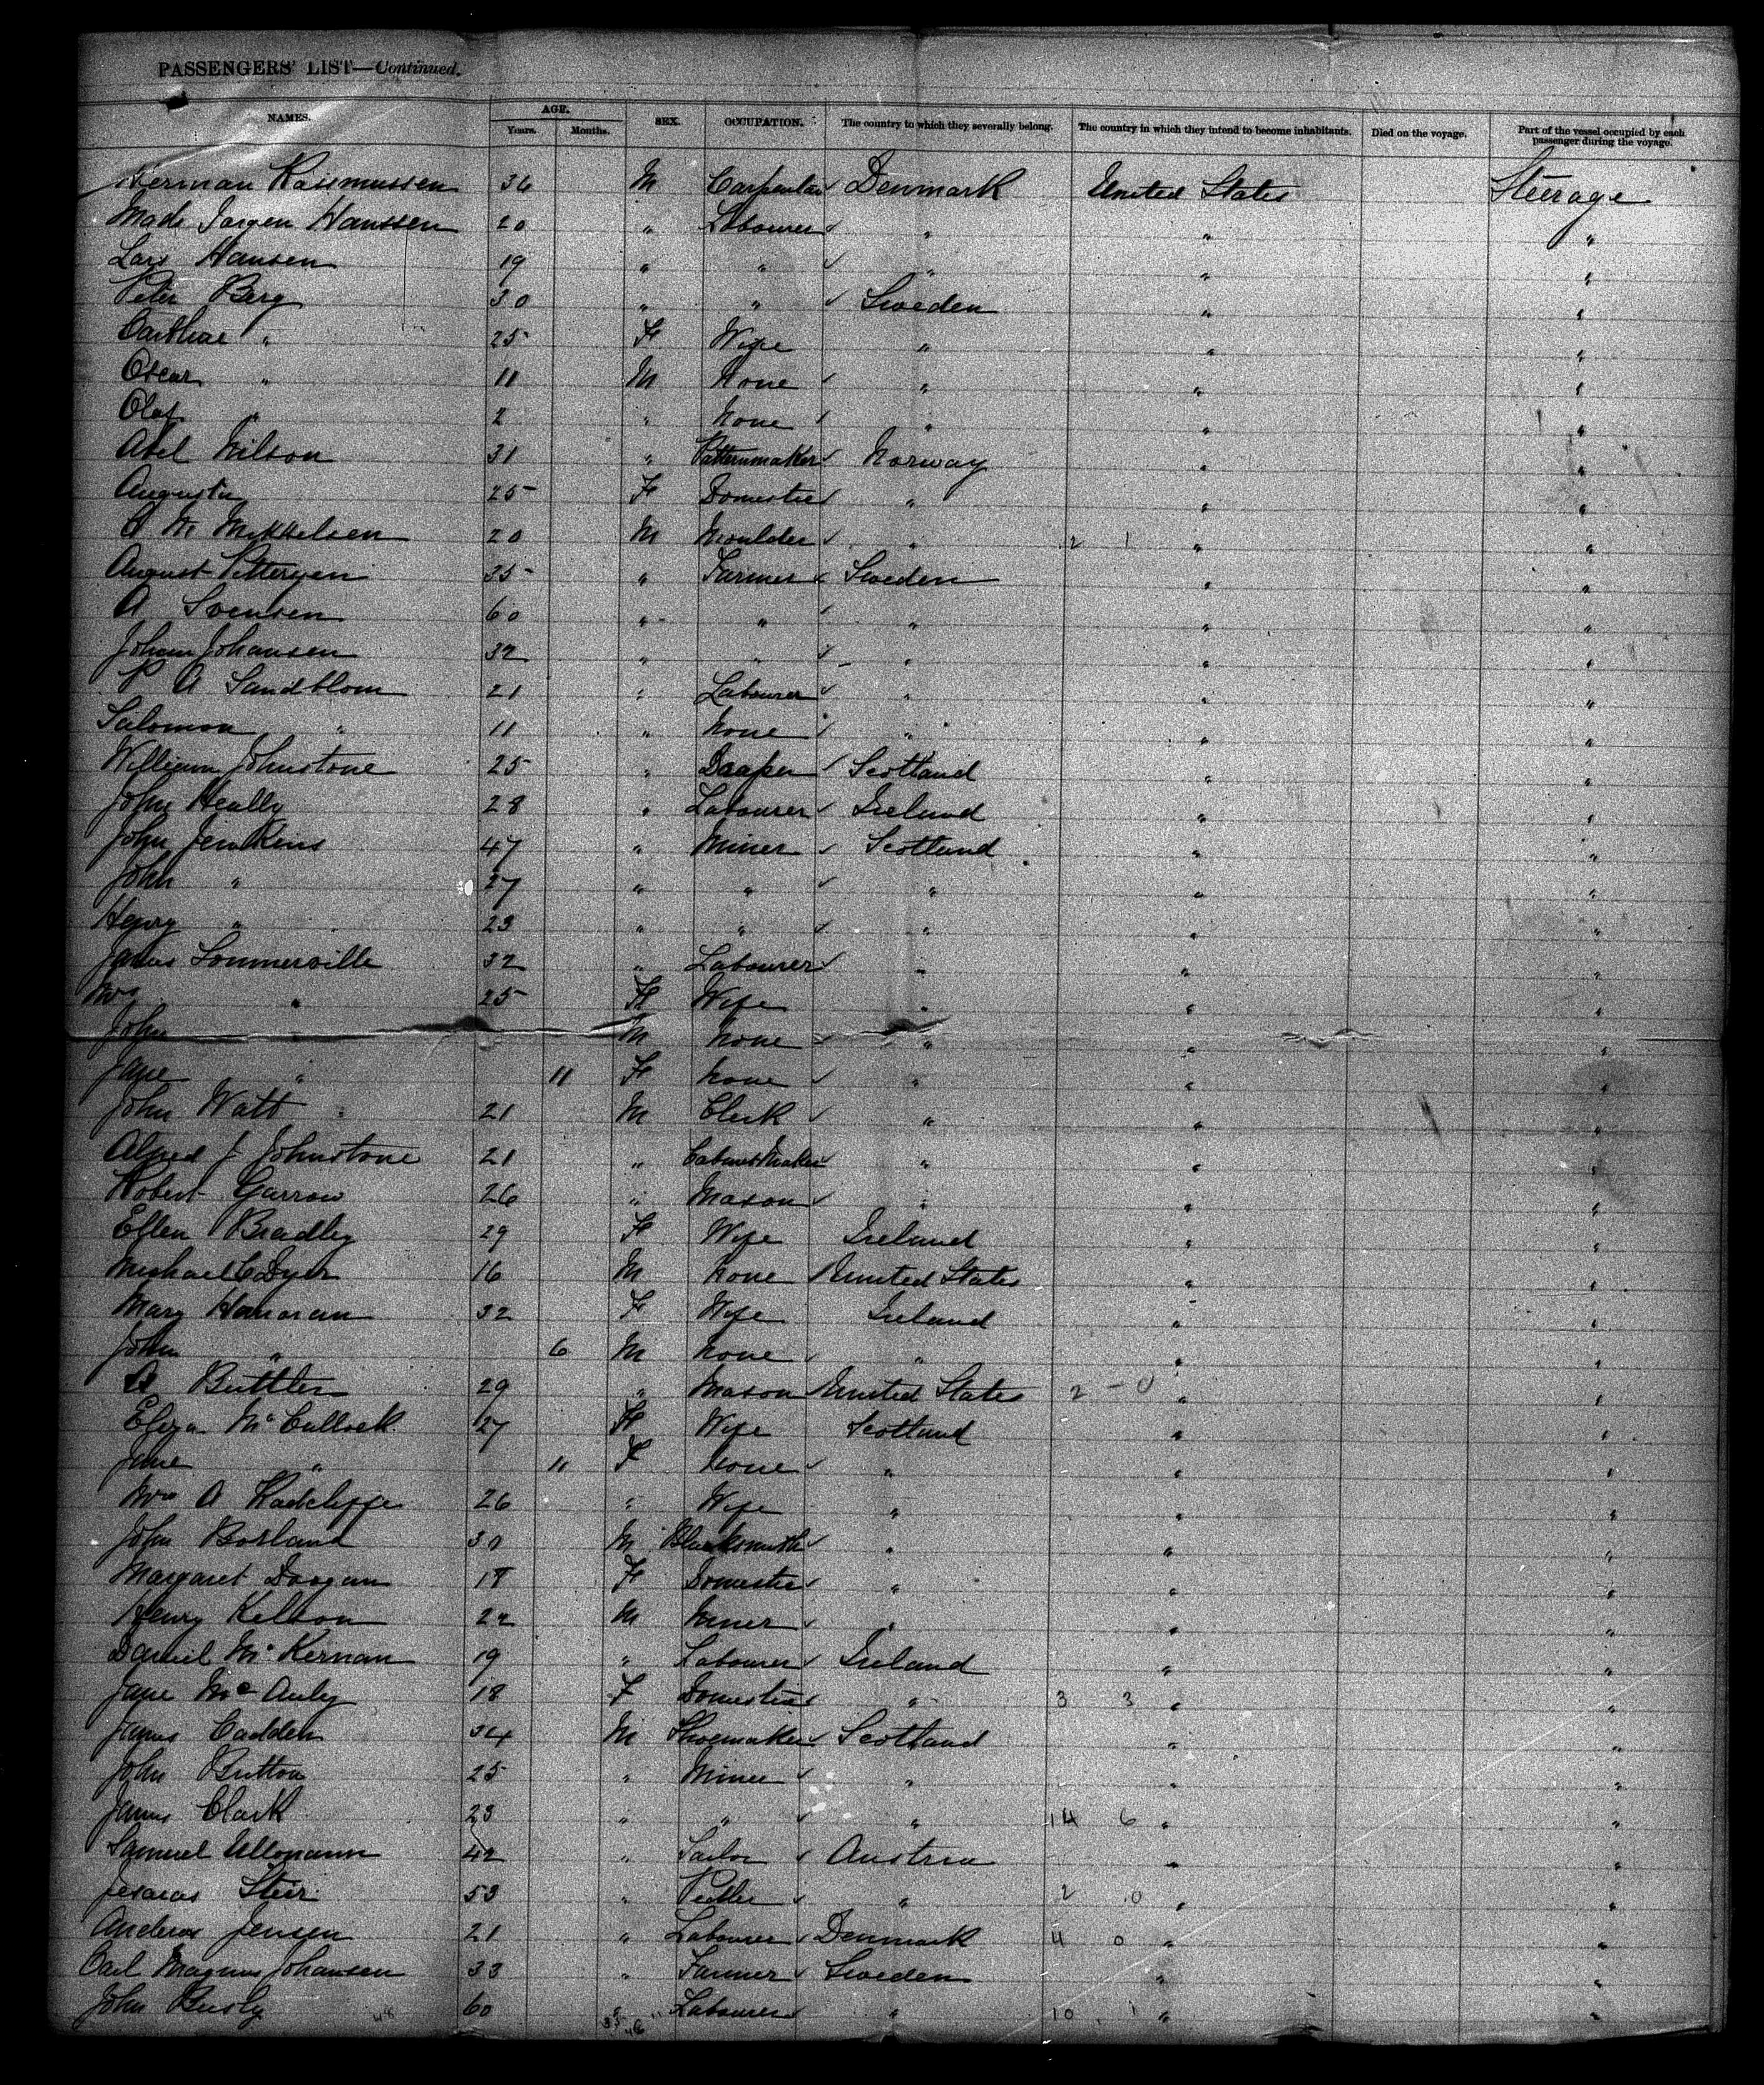 PASSENGERS' LIST—Continued.
NAMES. AGE. Years. Months. SEX. OCCUPATION. The country to which they severally belong. The country in which they intend to become inhabitants. Died on the voyage. Part of the vessel occupied by each passenger during the voyage.
Herman Rassmussen 36 M Carpenter Denmark United States Steerage
Mads Jorgen Hanssen 20 " Labourer " " "
Lars Hansen 19 " " " " "
Peter Berg 30 " " Sweden " "
" 25 F Wife " " "
Oscar " 11 M None " " "
Olaf " 2 " None " " "
Abel Nilson 31 " Patternmaker Norway " "
Augusta 25 F Domestic " " "
M Mikkelsen 20 M Moulder " 2 1 " "
August Pettersen 35 " Farmer Sweden " "
A Svensen 60 " " " " "
Johan Johansen 32 " " " " "
P A Sandblom 21 " Labourer " " "
Salomon " 11 " None " " "
William Johnstone 25 " Draper Scotland " "
John Heally 28 " Labourer Ireland " "
John Jenkins 47 " Miner Scotland " "
John " 27 " " " " "
Henry " 23 " " " " "
James Sommerville 32 " Labourer " " "
Mrs " 25 F Wife " " "
John " M None " " "
Jane " 11 F None " " "
John Watt 21 M Clerk " " "
Alfred J Johnstone 21 " Cabinet Maker " " "
Robert Garrow 26 " Mason " " "
Ellen Bradley 29 F Wife Ireland " "
Michael C Dyer 16 M None United States " "
Mary Hanoran 32 F Wife Ireland " "
John " 6 M None " " "
A Buttler 29 " Mason United States 2 - 0 " "
Eliza McCullock 27 F Wife Scotland " "
Jane " 11 F None " " "
Mrs A Radcliffe 26 " Wife " " "
John Borland 30 M Blacksmith " " "
Margaret Dougan 18 F Domestic " " "
Henry Kelson 22 M Miner " " "
Daniel McKernan 19 " Labourer Ireland " "
Jane McAuley 18 F Domestic " 3 3 " "
James Cadden 34 M Shoemaker Scotland " "
John Britton 25 " Miner " " "
James Clark 23 " " " 14 6 " "
Samuel Ullmann 42 " Tailor Austria " "
Jesaias Steir 53 " Pedler " 2 0 " "
Andreas Jensen 21 " Labourer Denmark 4 0 " "
Carl Magnus Johansen 33 " Farmer Sweden " "
John Busly 60 " Labourer " 10 1 " "